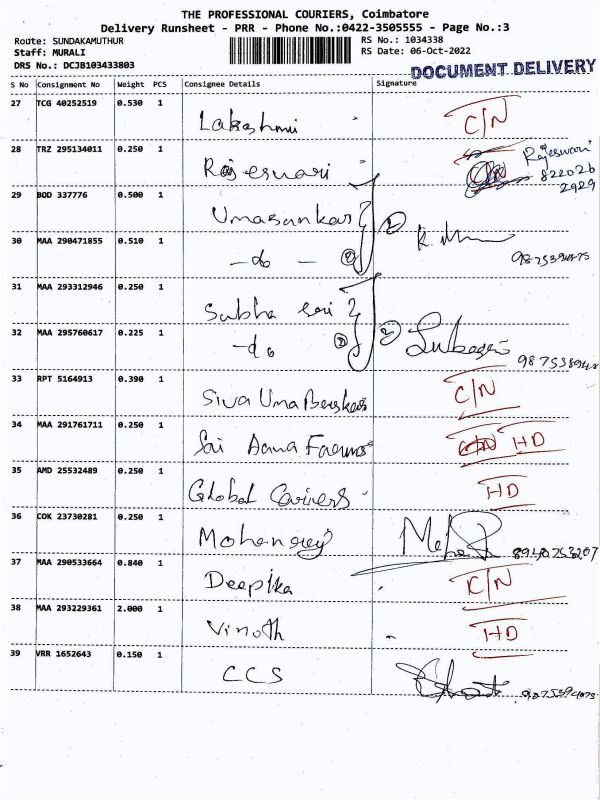 THE PROFESSIONAL COURIERS, Coimbatore
Delivery Runsheet - PRR - Phone No.:0422-3505555 - Page No.:3
Route: SUNDAKAMUTHUR RS No.: 1034338
Staff: MURALI RS Date: 06-Oct-2022
DRS No.: DCJB103433803 DOCUMENT DELIVERY
S No Consignment No Weight PCS Consignee Details Signature
27 TCG 40252519 0.530 1 Lakshmi C/N
28 TRZ 295134011 0.250 1 Rajeswari Rajeswari
822026
2929
29 BOD 337776 0.500 1 Umasankar
30 MAA 290471855 0.510 1 -do- 2 2
31 MAA 293312946 0.250 1 Subha Sri
32 MAA 295760617 0.225 1 -do 2 2
33 RPT 5164913 0.390 1 Siva Uma Baskar C/N
34 MAA 291761711 0.250 1 Sri Aama Farms HD
35 AMD 25532489 0.250 1 Global Coviners HD
36 COK 23730281 0.250 1 Mohanraj 8940753207
37 MAA 290533664 0.840 1 Deepika C/N
38 MAA 293229361 2.000 1 Vinoth HD
39 VRR 1652643 0.150 1 CCS